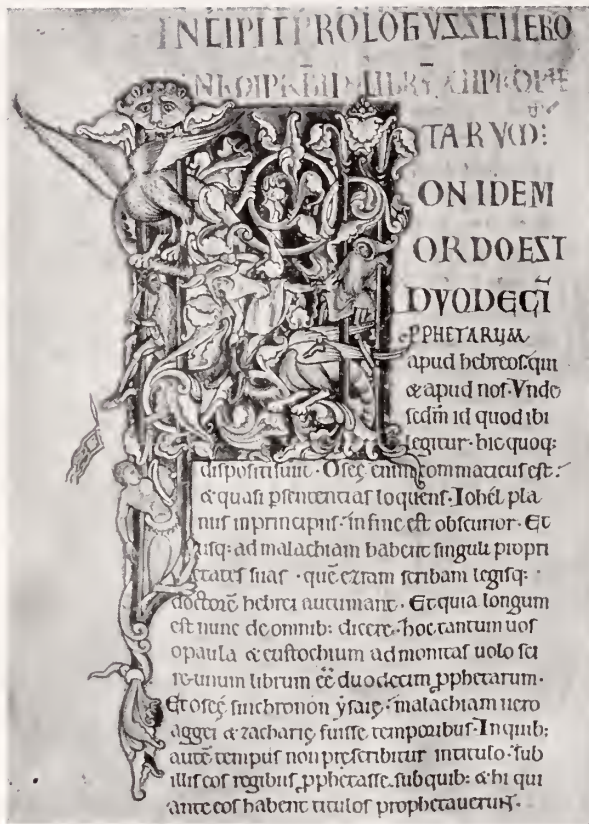 INCIPIT PROLOGUS SCI IERO
LIBRŪ XII PROPHE
TARUM:
ON IDEM
ORDO EST
DUODECĪ
PPHETARUM
apud hebreos· qui
& apud nos· Unde
sedm id quod ibi
legitur· hic quoq:
dispositum· Oseę enim commaticus est·
& quasi p sententias loquens· Iohel pla
nus in principiis· in fine est obscurior· Et
usq: ad malachiam habent singuli propri
etates suas· quē ezram scribam legisq:
doctorē hebrei autumant· Et quia longum
est nunc de omnib: dicere· hoc tantum uos
o paula & eustochium admonitas uolo sci
re· unum librum ēē duodecim pphetarum·
Et oseę sinchronon ysaię· malachiam uero
aggei & zacharię fuisse temporibus· In quib:
autē tempus non prescribitur in titulo· sub
illis eos regibus pphetasse sub quib: & hi qui
ante eos habent titulos prophetauerunt·